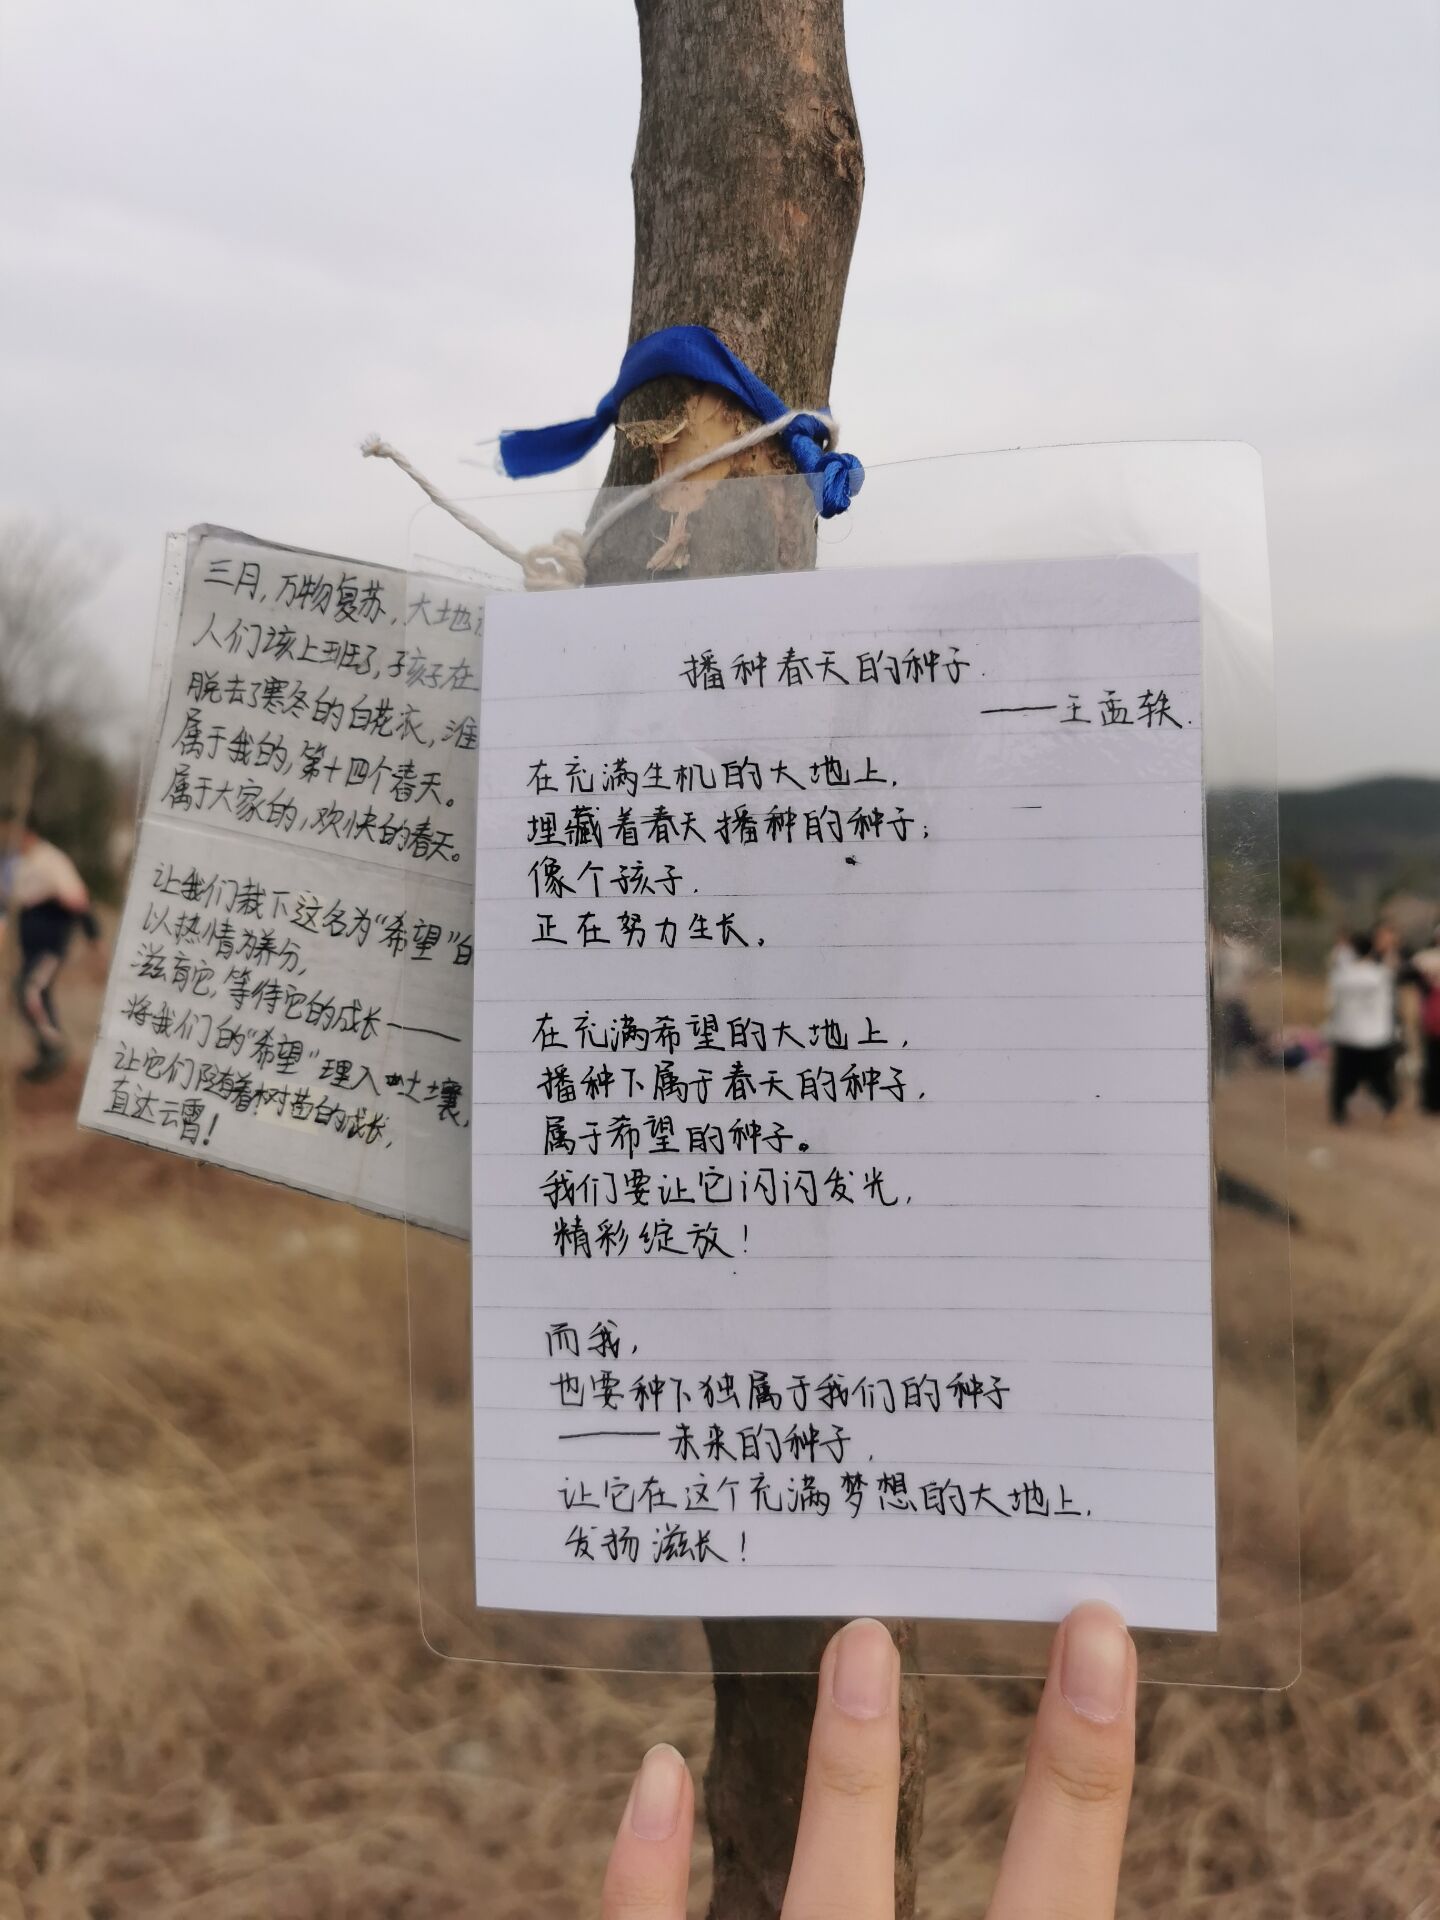 三月，万物复苏，大地
人们该上班了，孩子在
脱去了寒冬的白花衣，淮
属于我的，第十四个春天。
属于大家的，欢快的春天。
让我们栽下这名为“希望”白
以热情为养分，
滋育它，等待它的成长——
将我们的“希望”埋入土壤，
让它们随着树苗的成长，
直达云霄！
播种春天的种子
——王孟轶
在充满生机的大地上，
埋藏着春天播种的种子；
像个孩子，
正在努力生长。
在充满希望的大地上，
播种下属于春天的种子，
属于希望的种子。
我们要让它闪闪发光，
精彩绽放！
而我，
也要种下独属于我们的种子
——未来的种子，
让它在这个充满梦想的大地上，
发扬滋长！